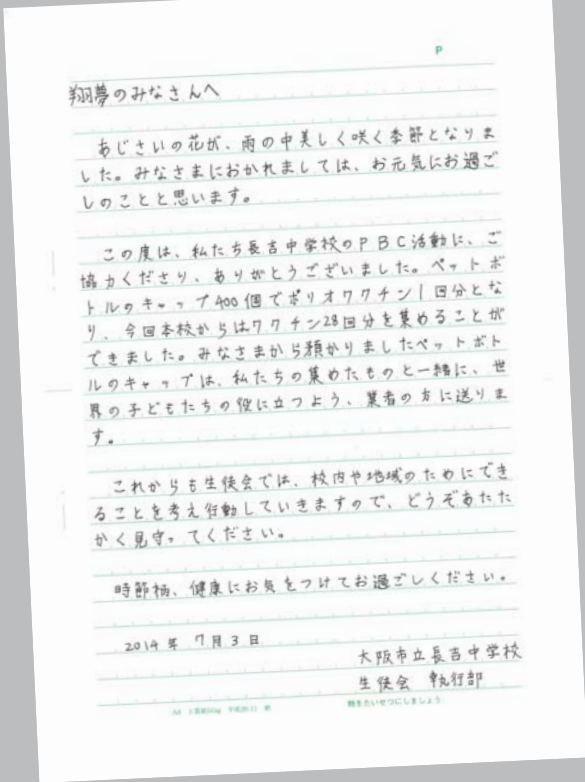 P
翔夢のみなさんへ
あじさいの花が、雨の中美しく咲く季節となりま
した。みなさまにおかれましては、お元気にお過ご
しのことと思います。
この度は、私たち長吉中学校のPBC活動に、ご
協力くださり、ありがとうございました。ペットボ
トルのキャップ400個でポリオワクチン1回分とな
り、今回本校からはワクチン28回分を集めることが
できました。みなさまから預かりましたペットボト
ルのキャップは、私たちの集めたものと一緒に、世
界の子どもたちの役に立つよう、業者の方に送りま
す。
これからも生徒会では、校内や地域のためにでき
ることを考え行動していきますので、どうぞあたた
かく見守ってください。
時節柄、健康にお気をつけてお過ごしください。
2014年 7月3日
大阪市立長吉中学校
生徒会 執行部
物をたいせつにしましょう